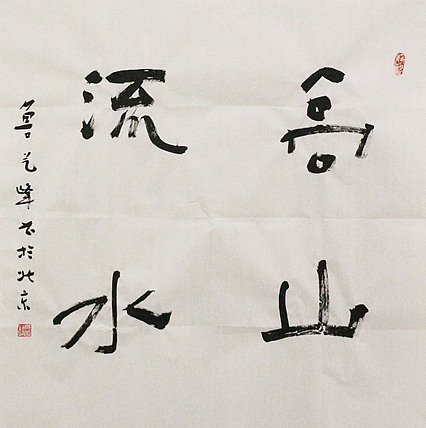 高山
流水
鲁芝峰书于北京